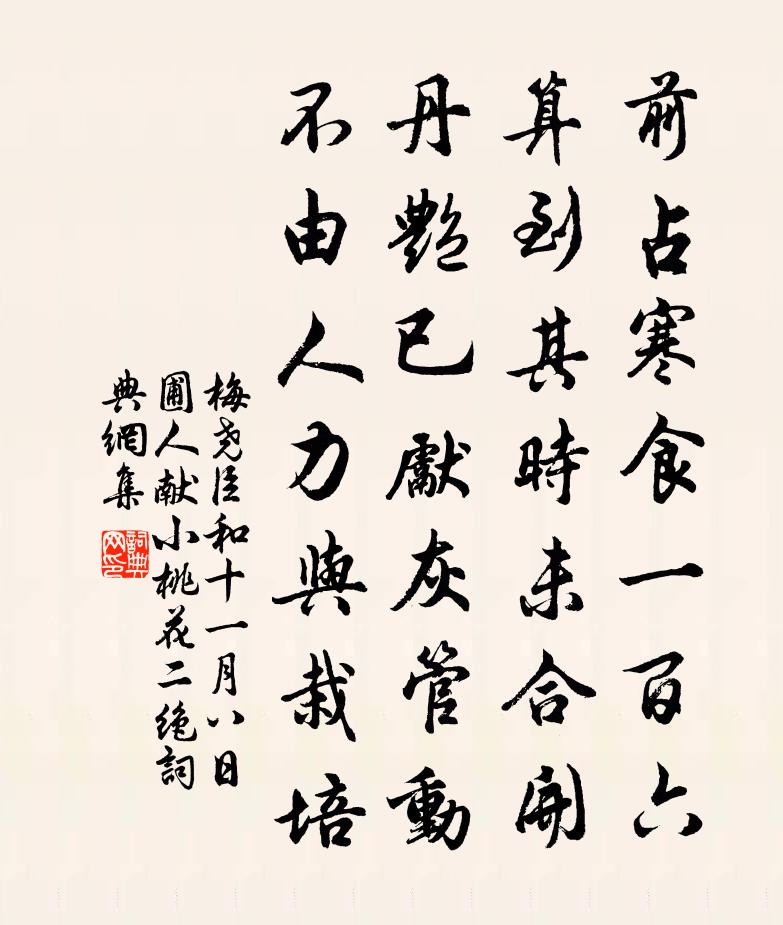 前占寒食一百六
算到其時未合開
丹艷已獻灰管動
不由人力與栽培
梅尧臣和十一月八日
圃人献小桃花二絶詞
典網集
詞典
网印